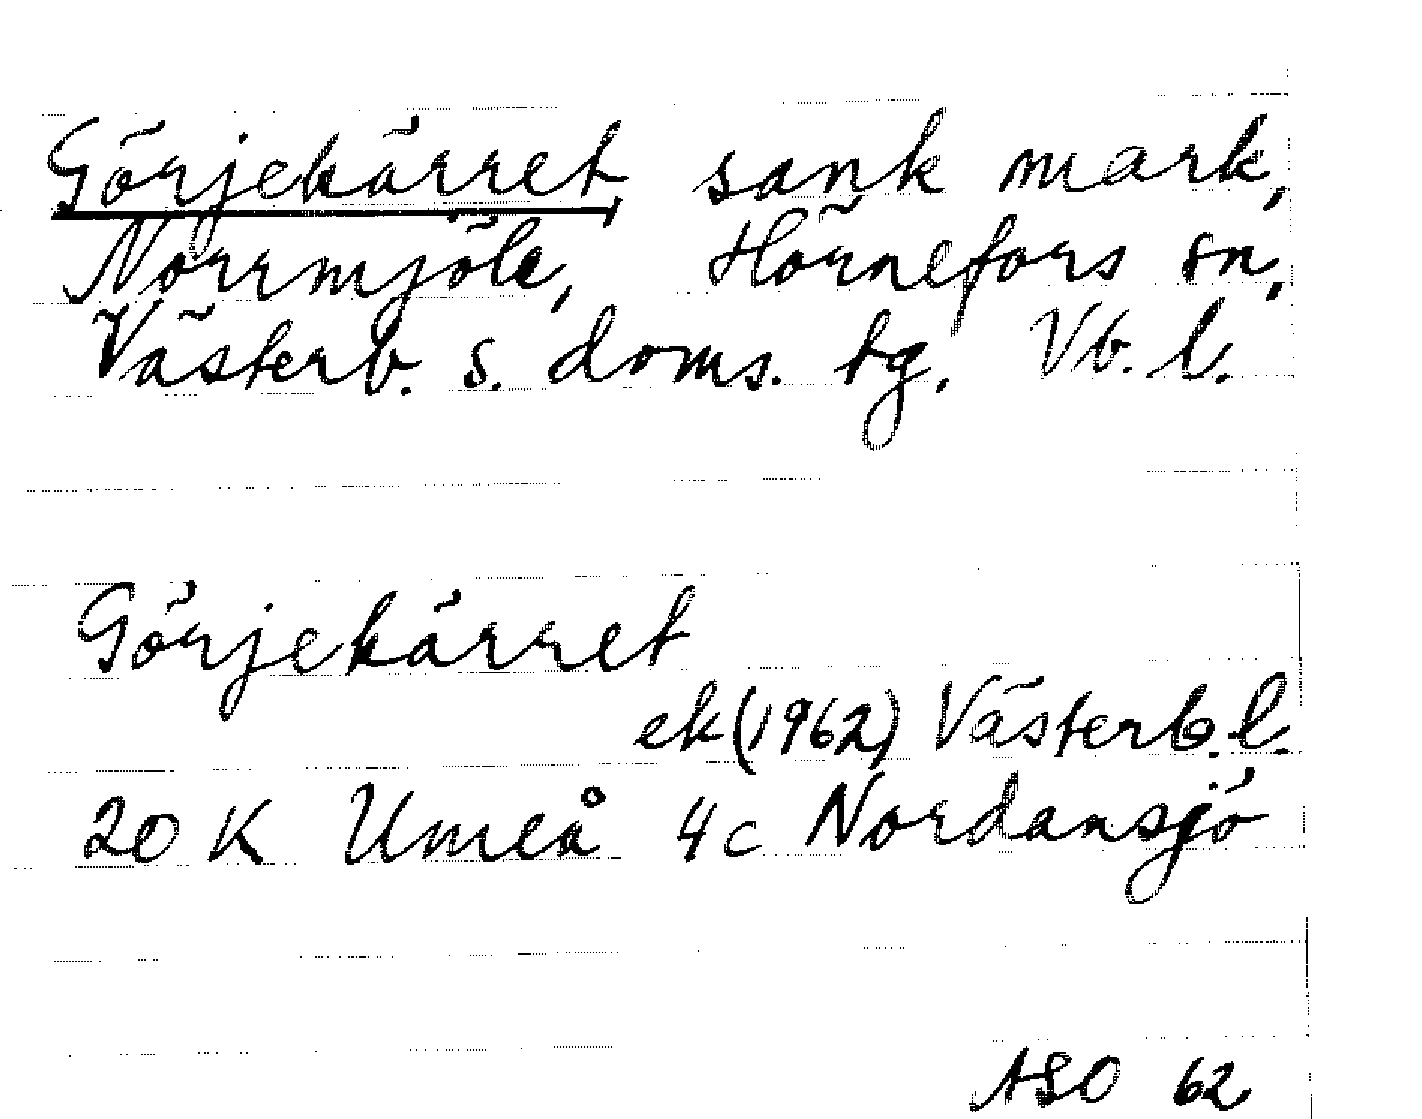 Görjekärret, sank mark,
Norrmjöle, Hörnefors sn,
Västerb. s. doms. tg. Vb. l.
Görjekärret
ek (1962) Västerb. l.
20 K Umeå 4c Nordansjö
ASO 62